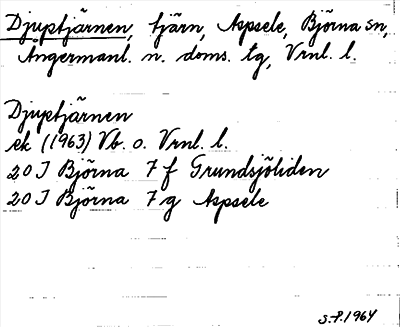 Djuptjärnen, tjärn, Aspsele, Björna sn,
Ångermanl. n. doms. tg, Vrnl. l.
Djuptjärnen
ek (1963) Vb. o. Vrnl. l.
20 J Björna 7 f Grundsjöliden
20 J Björna 7 g Aspsele
S.P. 1964